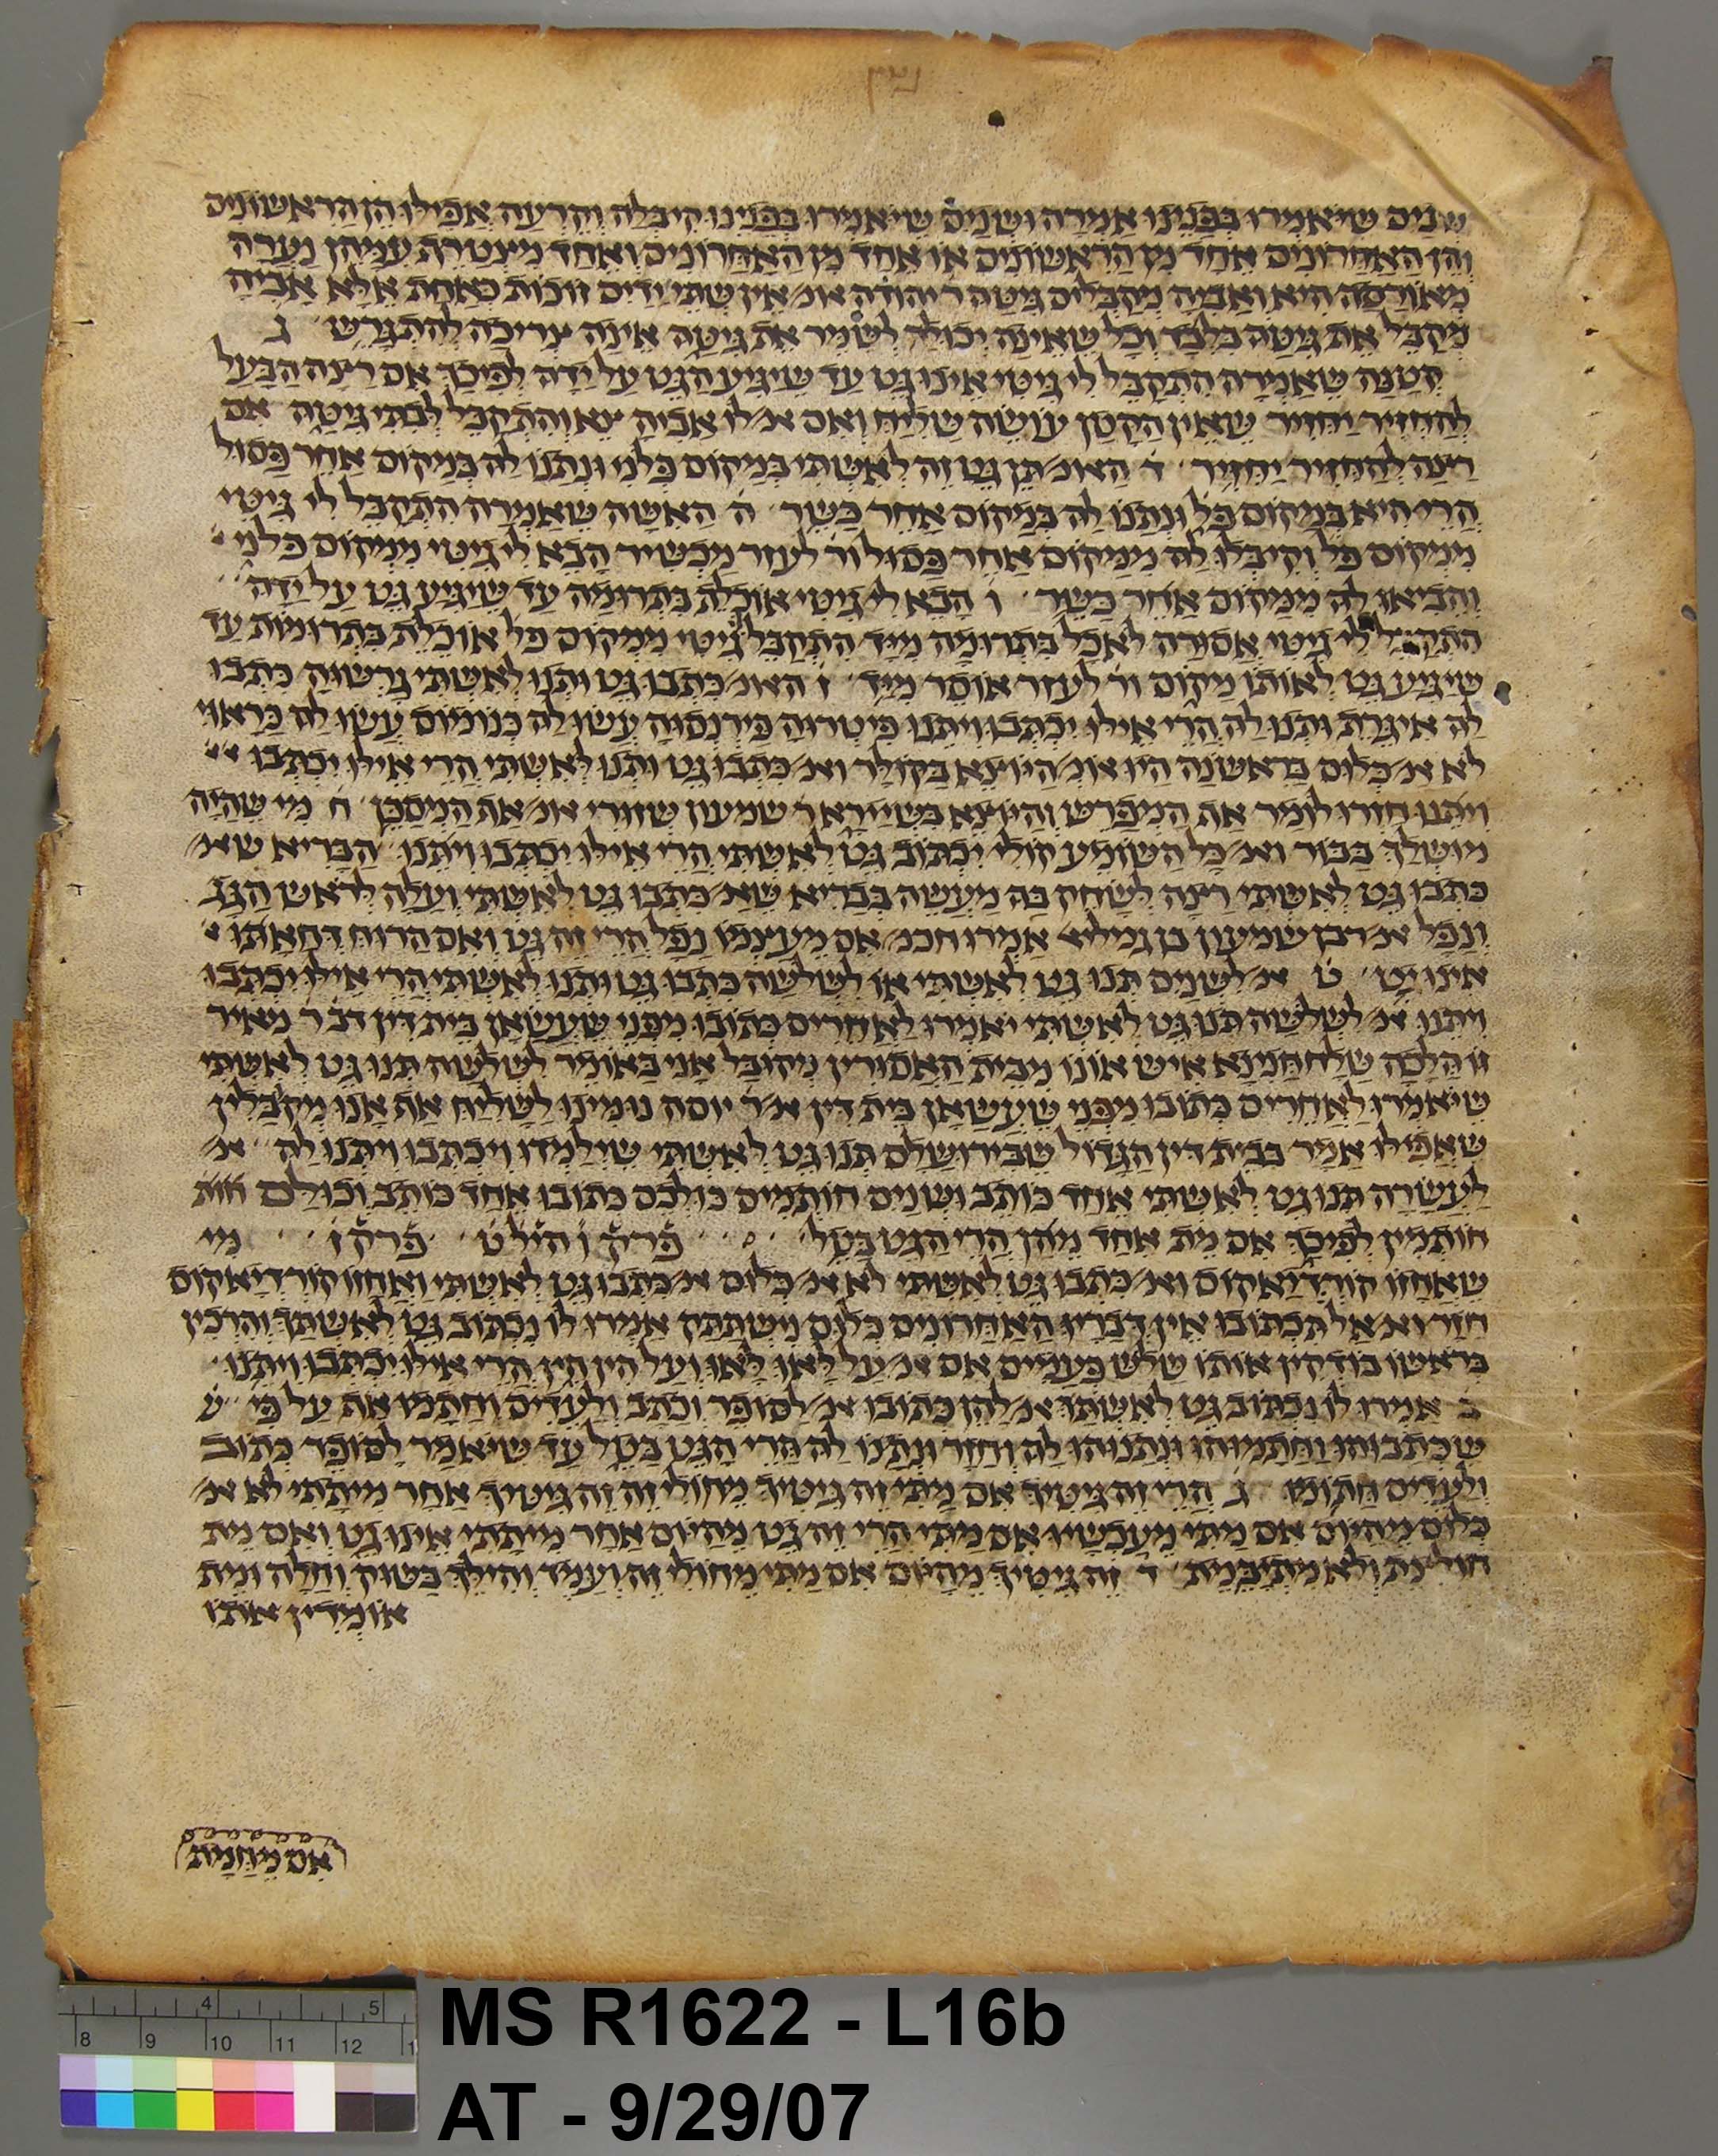 נשין
שנים שיאמרו בפנינו אמרה ושנים שיאמרו בפנינו קיבלה וקרעה אפילו הן הראשונים
והן האחרונים אחד מן הראשונים או אחד מן האחרונים ואחד מצטרף עמהן נערה
מאורסה היא ואביה מקבלים גיטה ר יהודה אומ׳ אין שתי ידים זוכות כאחת אלא אביה
מקבל את גיטה בלבד וכל שאינה יכולה לשמר את גיטה אינה צריכה להתגרש ג
קטנה שאמרה התקבל לי גיטי אינו גט עד שיגיע הגט על ידה לפיכך אם רצה הבעל
להחזיר יחזיר שאין הקטן עושה שליח ואם אמ׳ לו אביה צא והתקבל לבתי גיטה אם
רצה להחזיר יחזיר ד האומ׳ תן גט זה לאשתי במקום פלני ונתנו לה במקום אחר פסול
הרי היא במקום פל׳ ונתנו לה במקום אחר כשר ה האשה שאמרה התקבל לי גיטי
ממקום פל׳ וקיבלו לה ממקום אחר פסול ור לעזר מכשיר הבא לי גיטי ממקום פלני
והביאו לה ממקום אחר כשר ו הבא לי גיטי אוכלת בתרומה עד שיגיע גט על ידה
התקבל לי גיטי אסורה לאכל בתרומה מיד התקבל גיטי ממקום פל׳ אוכלת בתרומות עד
שיגיע גט לאותו מקום ור לעזר אוסר מיד ז האומ׳ כתבו גט ותנו לאשתי גרשוה כתבו
לה איגרת ותנו לה הרי אילו יכתבו ויתנו פיטרוה פירנסוה עשו לה כנומוס עשו לה כראוי
לא אמ׳ כלום בראשונה היו אומ׳ היוצא בקולר ואמ׳ כתבו גט ותנו לאשתי הרי אילו יכתבו
ויתנו חזרו לומר אף המפרש והיוצא בשיירא ר שמעון שזורי אומ׳ אף המסכן ח מי שהיה
מושלך בבור ואמ׳ כל השומע קולי יכתוב גט לאשתי הרי אילו יכתבו ויתנו הבריא שאמ׳
כתבו גט לאשתי רצה לשחק בה מעשה בבריא שאמ׳ כתבו גט לאשתי ועלה לראש הגג
ונפל אמ׳ רבן שמעון בן גמליאל אמרו חכמ׳ אם מעצמו נפל הרי זה גט ואם הרוח דחאתו
אינו גט ט אמ׳ לשנים תנו גט לאשתי או לשלשה כתבו גט ותנו לאשתי הרי אילו יכתבו
ויתנו אמ׳ לשלשה תנו גט לאשתי יאמרו לאחרים כתובו מפני שעשאן בית דין דבר׳ ר׳ מאיר
זו הלכה שלח חנינא איש אונו מבית האסורין מקובל אני באומר לשלשה תנו גט לאשתי
שיאמרו לאחרים כתובו מפני שעשאן בית דין אמ׳ ר יוסה נומינו לשליח אף אנו מקובלין
שאפילו אמר בבית דין הגדול שבירושלם תנו גט לאשתי שילמדו ויכתבו ויתנו לה אמ׳
לעשרה תנו גט לאשתי אחד כותב ושנים חותמים כולכם כתובו אחד כותב וכולם
חותמין לפיכך אם מת אחד מהן הרי הגט בטל פרק׳ ו הל׳ ט פרק׳ ז מי
שאחזו קורדיאקוס ואמ׳ כתבו גט לאשתי לא אמ׳ כלום אמ׳ כתבו גט לאשתי ואחזו קורדיאקוס
חזר ואמ׳ אל תכתובו אין דבריו האחרונים כלום נשתתק אמרו לו נכתוב גט לאשתך והרכין
בראשו בודקין אותו שלש פעמים אם אמ׳ על לאו לאו ועל הין הין הרי אילו יכתבו ויתנו
ב אמרו לו נכתוב גט לאשתך אמ׳ להן כתובו אמ׳ לסופר וכתב ולעדים וחתמו אף על פי ש
שכתבוהו וחתמוהו ונתנוהו לה וחזר ונתנו לה הרי הגט בטל עד שיאמר לסופר כתוב
ולעדים חתומו ג הרי זה גיטיך אם מתי זה גיטיך מחולי זה זה גיטיך אחר מיתתי לא אמ׳
כלום מהיום אם מתי מעכשיו אם מתי הרי זה גט מהיום אחר מיתתי אינו גט ואם מת
חולצת ולא מתיבמת ד זה גיטיך מהיום אם מתי מחולי זה ועמד והילך בשוק וחלה ומת
אומדין אותו
אם מחמת
MS R1622 - L16b
AT - 9/29/07